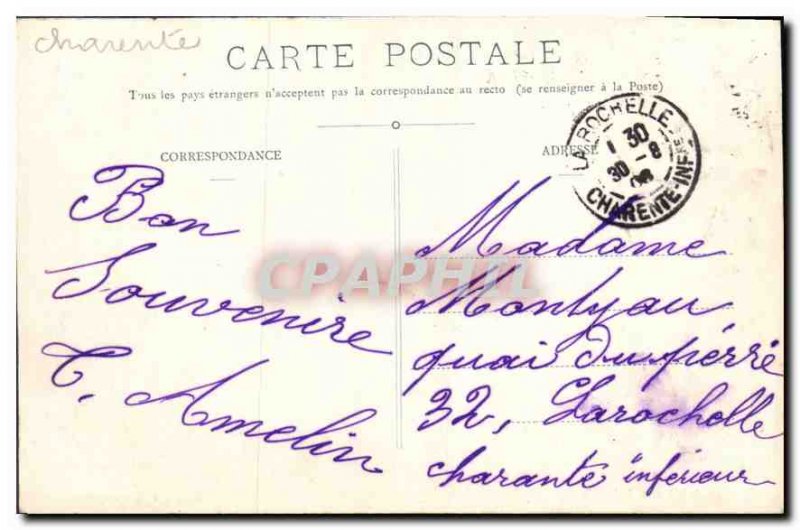 charente
CARTE POSTALE
Tous les pays étrangers n'acceptent pas la correspondance au recto (se renseigner à la Poste)
CORRESPONDANCE
ADRESSE
LA ROCHELLE
1 30
30 - 8
08
CHARENTE-INFRE
Bon
Souvenire
T. Amelin
CPAPHIL
Madame
Montyau
quai du pérré
32, Larochelle
charante inférieur